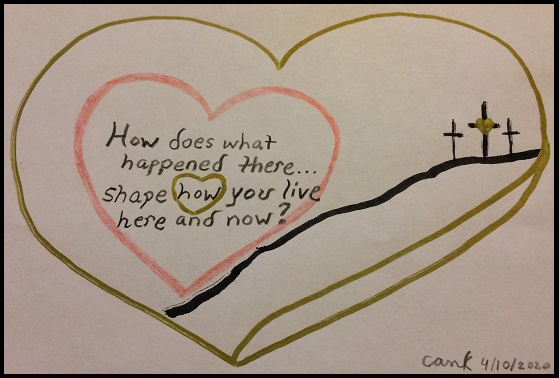 How does what
happened there...
shape how you live
here and now?
cank 4/10/2020